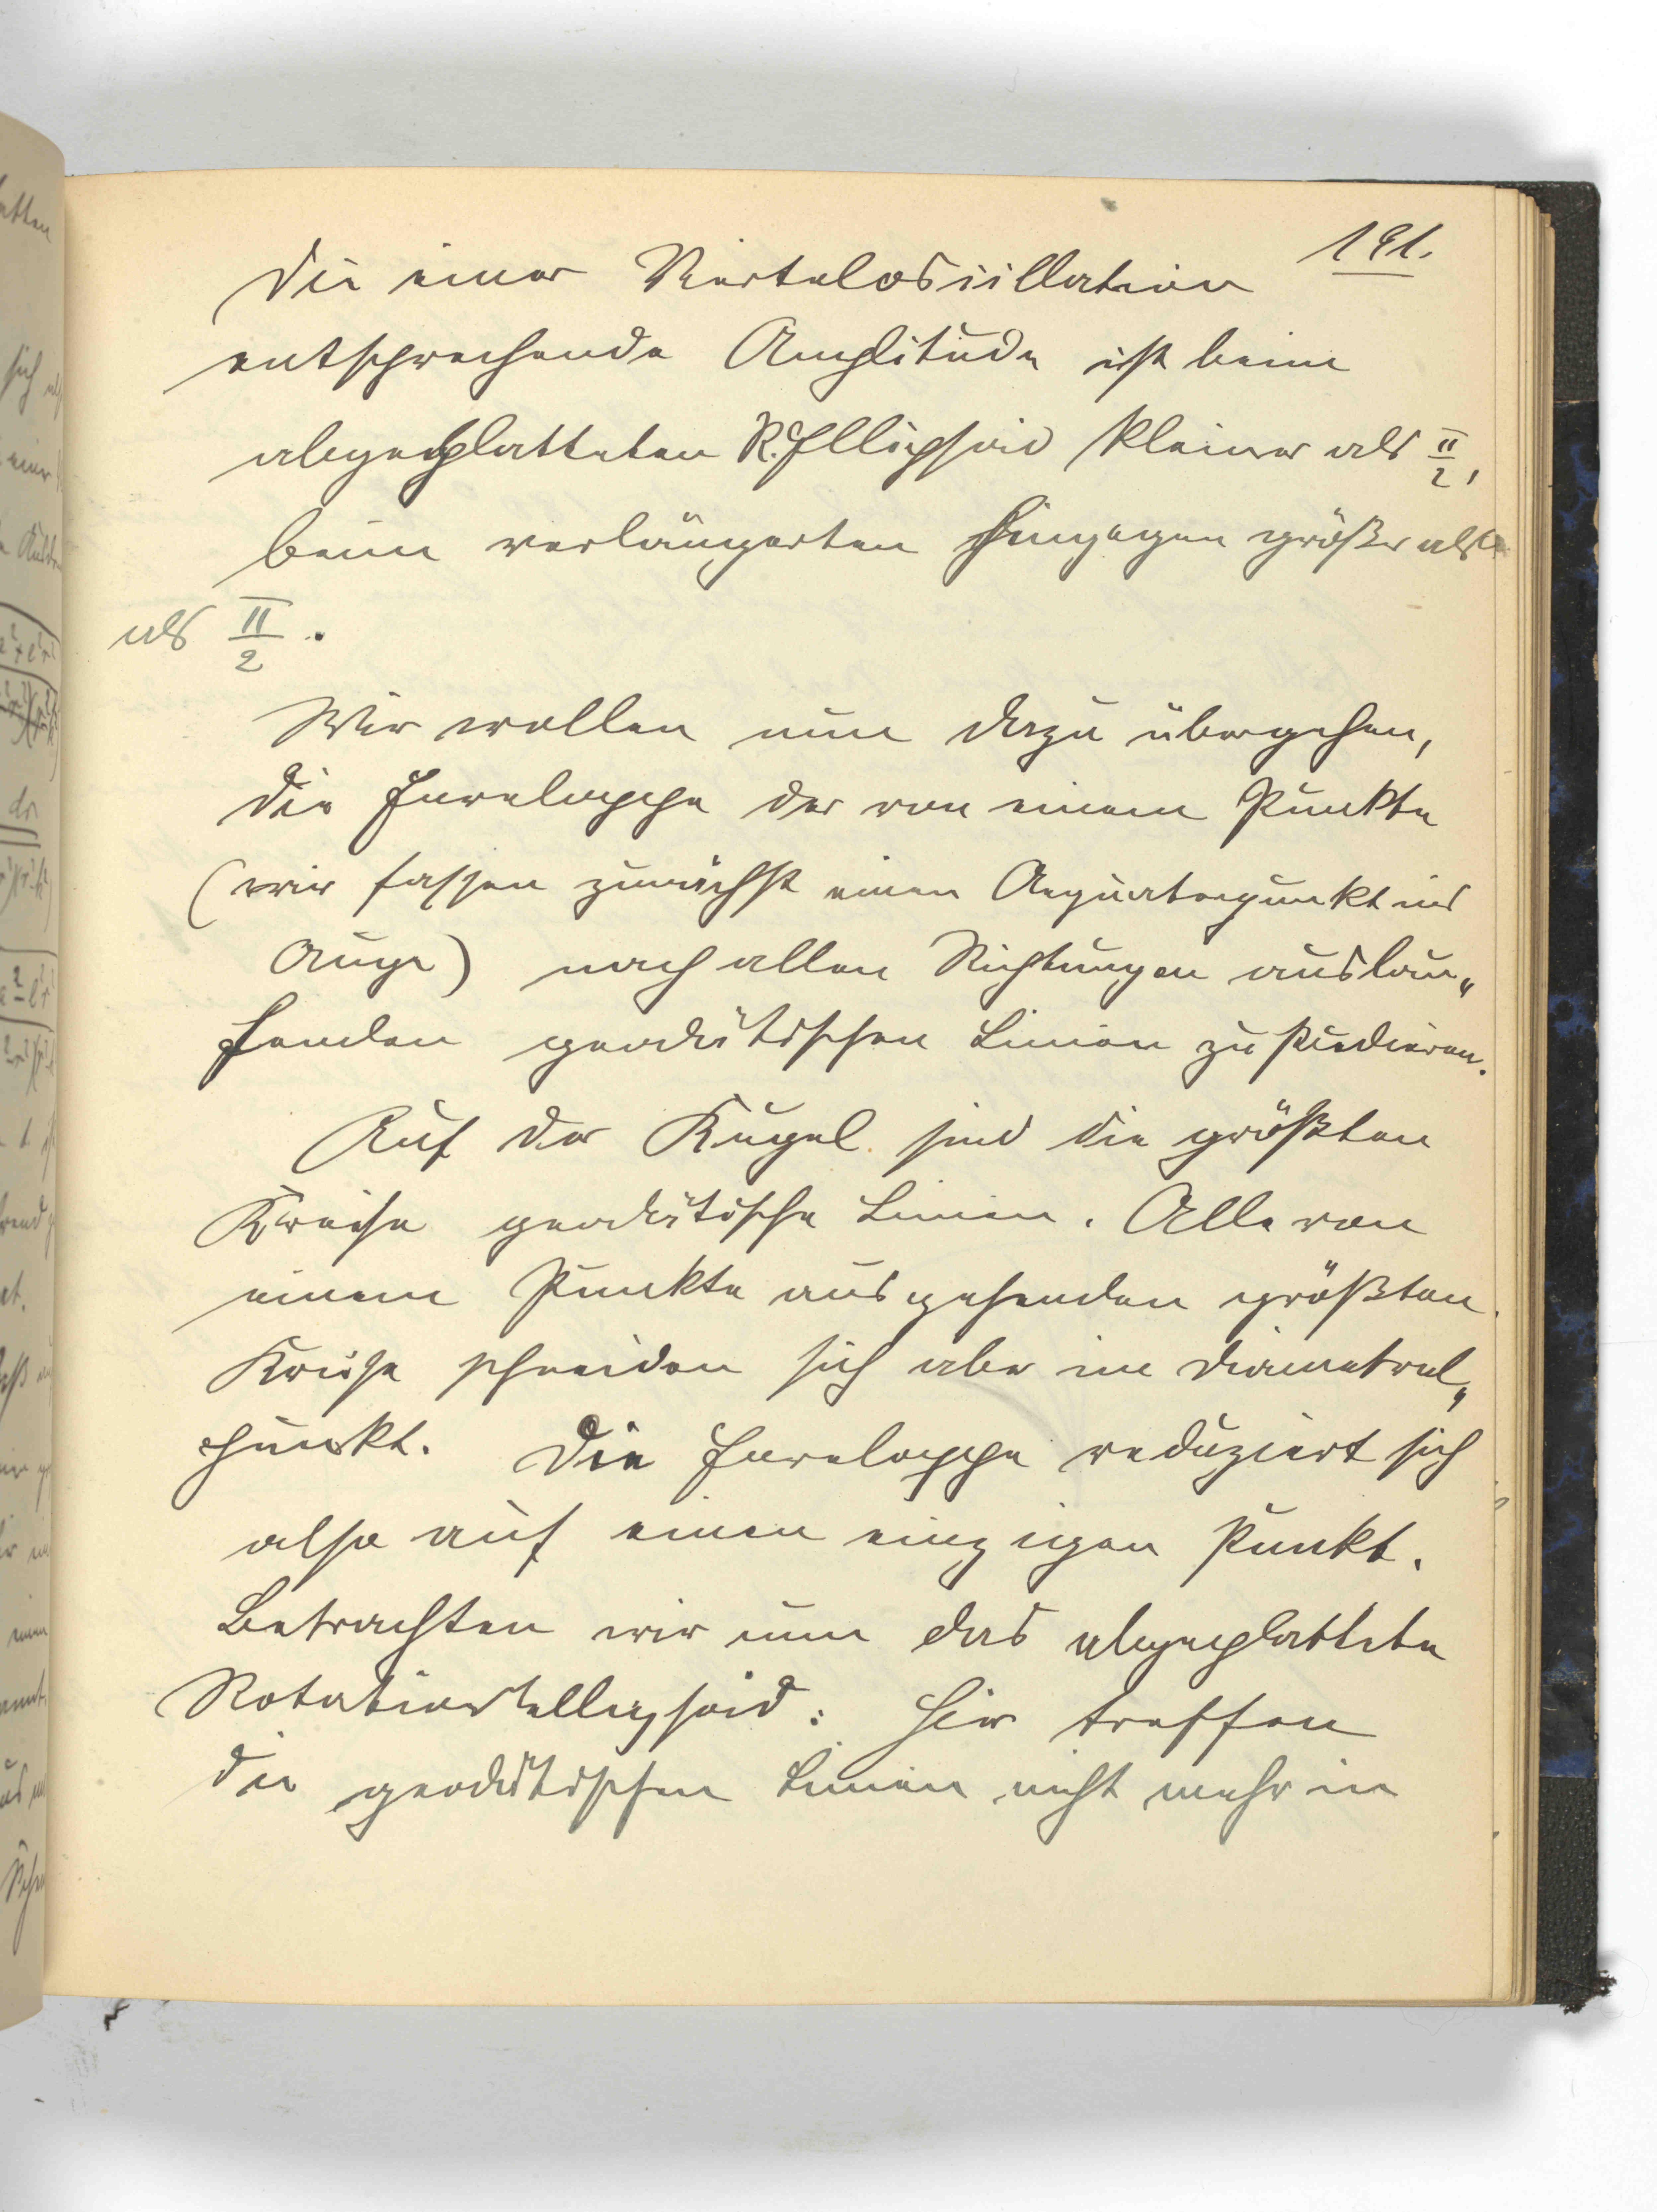 191.
Die einer Vierteloszillation
entsprechende Amplitude ist beim
abgeplatteten R.Ellipsoid kleiner als π/2,
beim verlängerten hingegen größer als
als π/2.
Wir wollen nun dazu übergehen,
die Enveloppe der von einem Punkte
(wir fassen zunächst einen Aequatorpunkt ins
Auge) nach allen Richtungen auslau„
fenden geodätischen Linien zu studieren.
Auf der Kugel sind die größten
Kreise geodätische Linien. Alle von
einem Punkte ausgehenden größten
Kreise schneiden sich aber im Diametral„
punkt. Die Enveloppe reduziert sich
also auf einen einzigen Punkt.
Betrachten wir nun das abgeplattete
Rotationsellipsoid: Hier treffen
die geodätischen Linien nicht mehr in